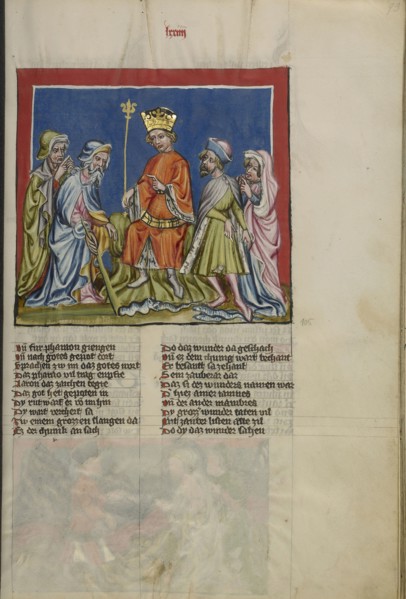 für pharaon giengen
Vn nach gotes gepot dort
Sprachen zv im daz gotes wort
Daz pharao vil trag enpfie
Aaron daz zaichen begie
Daz got het gepoten in
Dy rut warf er vo im hin
Dy wart verchert sa
Zv einem grozzen slangen da
Er der chunik an sach
Do daz wunder da geschach
Vn ez dem chunig wart bechant
Er besant sa zehant
Sein zauberar dar
Daz si dez wunders namen war
ainer iamnes
Vn der ander mambres
Dy grozz wunder taten vil
Mit zauber listen alle zil
Do dy daz wunder sahen